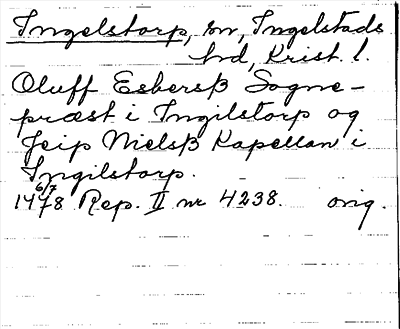 Ingelstorp, sn, Ingelstads
hd, Krist. l.
Oluff Esbersß Sogne-
præst i Ingilstorp og
Jeip Nielsß Kapellan i
Ingilstorp.
1478 6/7 Rep. II nr 4238. orig.